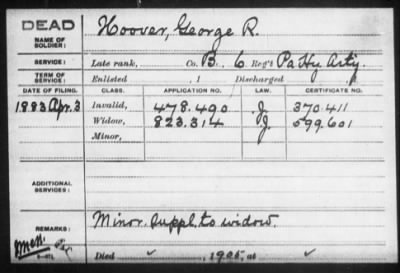 DEAD
NAME OF SOLDIER: Hoover, George R.
SERVICE: Late rank, Co. B. 6 Reg't Pa Hy Arty.
TERM OF SERVICE: Enlisted , 1 Discharged , 1
DATE OF FILING. CLASS. APPLICATION NO. LAW. CERTIFICATE NO.
1883 Apr. 3 Invalid, 478.490 J. 370.411
Widow, 823.314 J. 599.601
Minor,
ADDITIONAL SERVICES:
REMARKS: Minor. Suppl. to widow.
Died , 1905, at